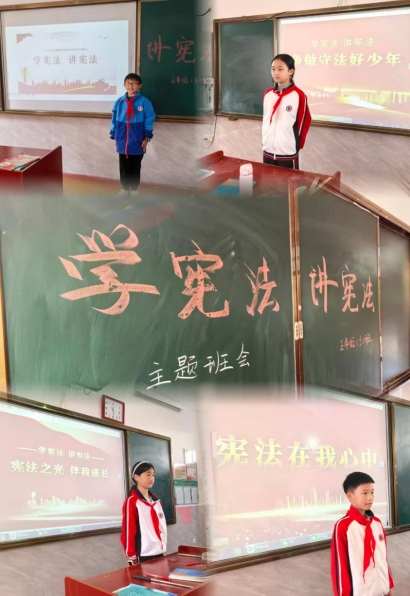 学宪法 讲宪法
讲宪
学宪法 讲宪法
做守法好少年
学宪法 讲宪法
主题班会
学宪法 讲宪法
宪法之光 伴我成长
宪法在我心中